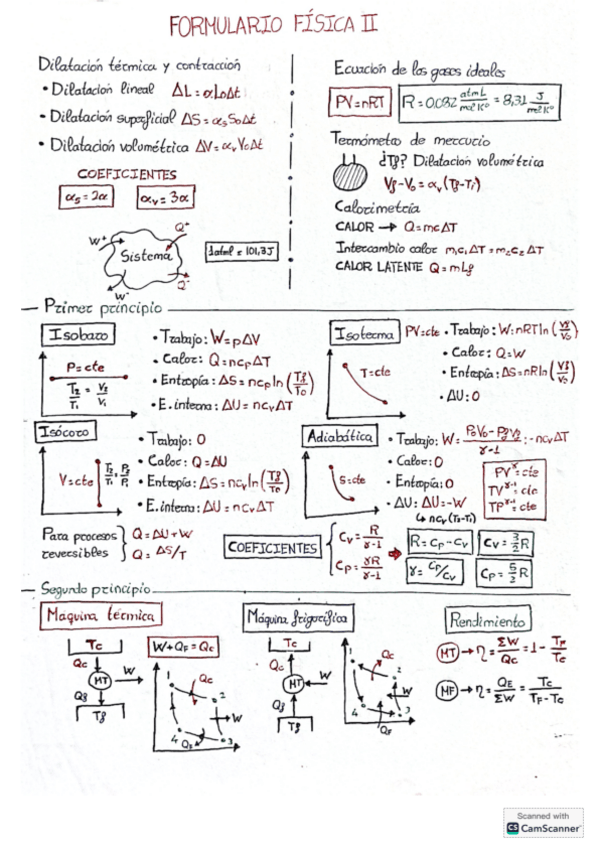 FORMULARIO FÍSICA II
Dilatación térmica y contracción
• Dilatación lineal ΔL = αL₀Δt
• Dilatación superficial ΔS = αₛS₀Δt
• Dilatación volumétrica ΔV = αᵥV₀Δt
COEFICIENTES
αₛ = 2α
αᵥ = 3α
W⁺
Q⁺
Sistema
W⁻
Q⁻
1atml = 101,3J
Ecuación de los gases ideales
PV = nRT
R = 0,082 atmL/molKº = 8,31 J/molKº
Termómetro de mercurio
¿Tf? Dilatación volumétrica
Vf - V₀ = αᵥ (Tf - Ti)
Calorimetría
CALOR → Q = mcΔT
Intercambio calor m₁c₁ΔT = m₂c₂ΔT
CALOR LATENTE Q = mLf
Primer principio
Isobaro
P = cte
T₂/T₁ = V₂/V₁
• Trabajo: W = pΔV
• Calor: Q = ncpΔT
• Entropía: ΔS = ncp ln (Tf/T₀)
• E. interna: ΔU = ncvΔT
Isoterma
PV = cte
T = cte
• Trabajo: W = nRT ln (Vf/V₀)
• Calor: Q = W
• Entropía: ΔS = nR ln (Vf/V₀)
• ΔU: 0
Isócoro
V = cte
T₂/T₁ = P₂/P₁
• Trabajo: 0
• Calor: Q = ΔU
• Entropía: ΔS = ncv ln (Tf/T₀)
• E. interna: ΔU = ncvΔT
Adiabática
S = cte
• Trabajo: W = P₀V₀ - PfVf / γ-1 : -ncvΔT
• Calor: 0
• Entropía: 0
• ΔU: ΔU = -W
↳ ncv (T₂-T₁)
PV^γ = cte
TV^γ-1 = cte
Para procesos reversibles
Q = ΔU + W
Q = ΔS/T
COEFICIENTES
Cv = R/γ-1
Cp = γR/γ-1
R = Cp - Cv
Cv = 3/2 R
γ = Cp/Cv
Cp = 5/3 R
Segundo principio
Maquina térmica
Tc
Qc
MT
W
Qf
Tf
W + QF = Qc
1
Qc
2
W
4
QF
3
Máquina frigorífica
Tc
Qc
MT
W
Qf
Tf
1
Qc
2
W
4
QF
3
Rendimiento
MT → η = ΣW/Qc = 1 - TF/Tc
MF → η = QE/ΣW = Tc/TF - Tc
Scanned with
CS CamScanner